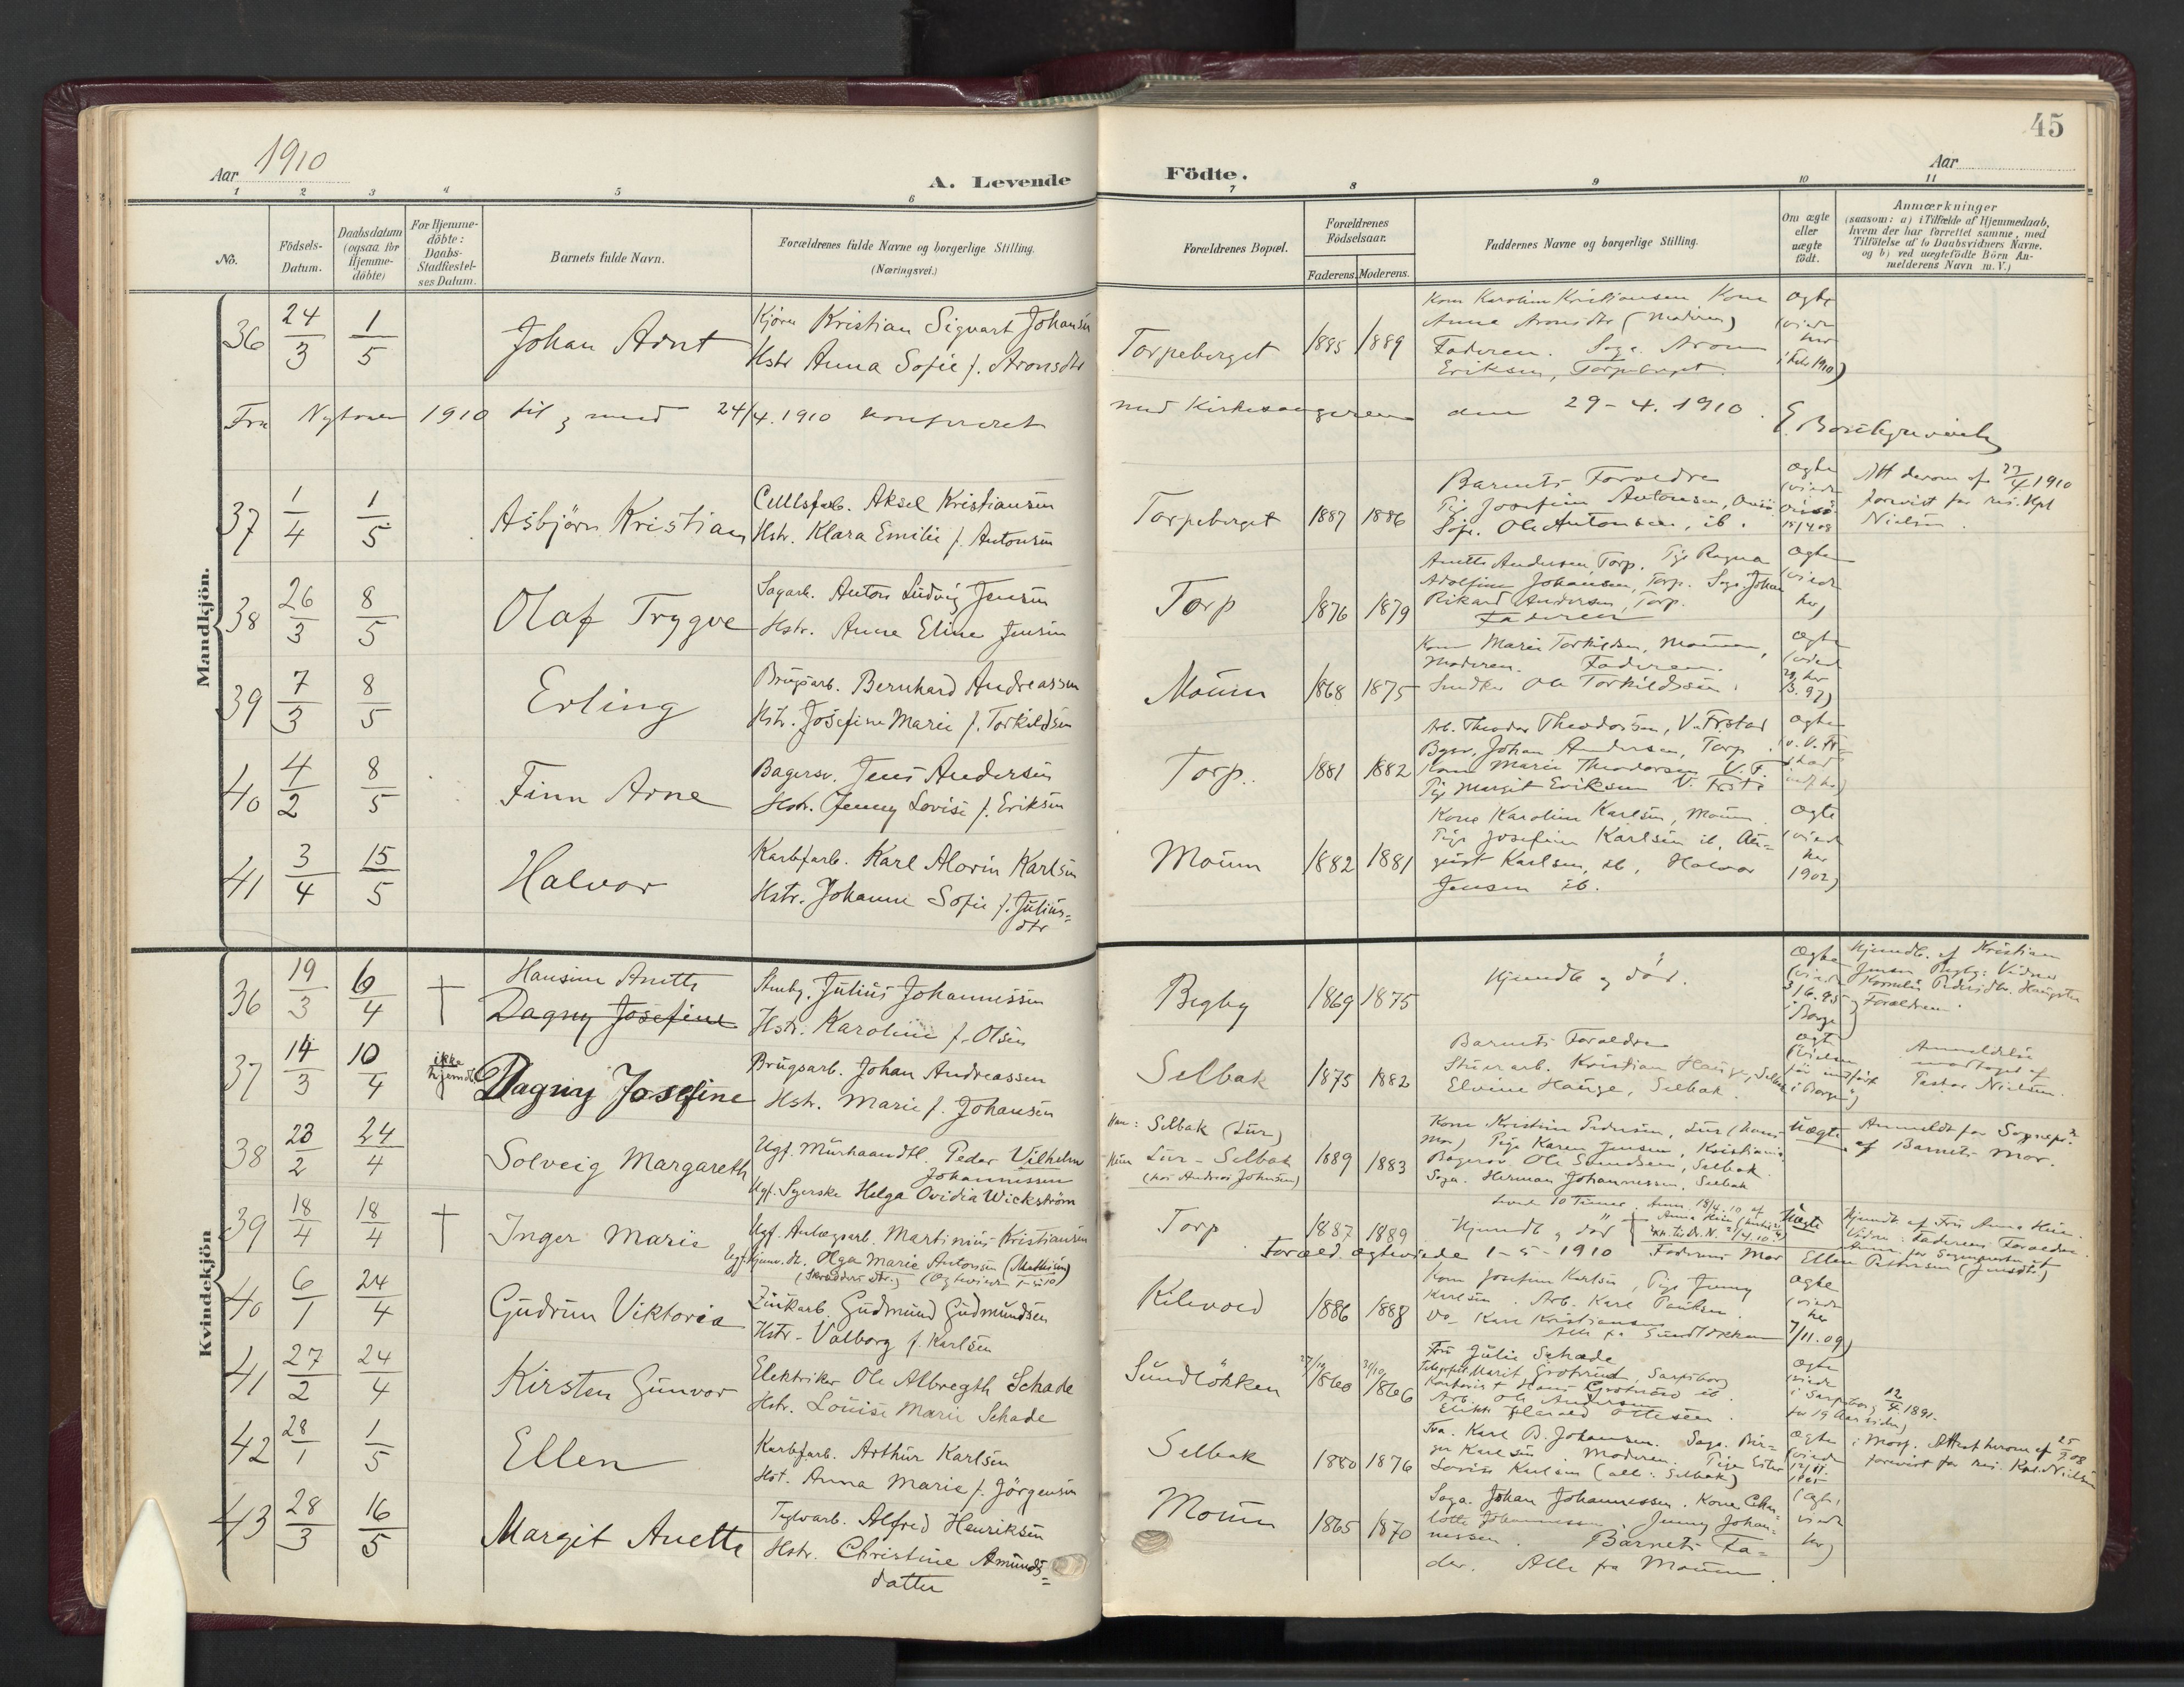 45
Aar 1910
A. Levende Födte.
Aar
1 2 3 4 5 6 7 8 9 10 11
No.
Födsels-Datum.
Daabsdatum (ogsaa for Hjemme-döbte)
For Hjemme-döbte: Daabs-Stadfæstel-ses Datum.
Barnets fulde Navn.
Forældrenes fulde Navne og borgerlige Stilling.
(Næringsvei.)
Forældrenes Bopæl.
Forældrenes Födselsaar.
Faderens. Moderens.
Faddernes Navne og borgerlige Stilling.
Om ægte eller uægte födt.
Anmærkninger
(saasom: a) i Tilfælde af Hjemmedaab,
hvem der har forrettet samme, med
Tilföielse af to Daabsvidners Navne.
og b) ved uægtefödte Börn An-
melderens Navn m. V.)
Mandkjön.
36 24/3 1/5 Johan Arnt
Kristian Sigvart Johansen
Hstr Anna Sofie f. Aronsdtr
Torpeberget 1885 1889
Kone Karoline Kristiansen, Kone
Anna Aronsdtr (Moderen)
Faderen. Sag. Aron
Eriksen, Torpeberget.
ægte
(viede
her
i Feb. 1910)
Fra Nytaar 1910 til og med 24/4. 1910 konfereret med Kirkesangeren den 29-4. 1910.
37 1/4 1/5 Asbjörn Kristian
Cellsfarb. Aksel Kristiansen
Hstr. Klara Emilie f. Antonsen
Torpeberget 1887 1886
Barnets Forældre
Pige Josefine Antonsen, Onsö
Ole Antonsen, ib.
ægte
(viede
Onsö
Att derom af 27/4 1910
forevist for res. Kpl
Nielsen.
38 26/3 8/5 Olaf Trygve
Sagarb. Anton Ludvig Jensen
Hstr. Anne Eline Jensen
Torp 1876 1879
Anette Andersen, Torp. Pige Ragna
Adolfine Johansen, Torp. Sag. Johan
Rikard Andersen, Torp.
Faderen
ægte
(viede
her)
39 7/3 8/5 Erling
Brugsarb. Bernhard Andreassen
Hstr. Josefine Marie f. Torkildsen
Moum 1868 1875
Kone Marie Torkildsen, Moum,
Moderen. Faderen.
Smed Ole Torkildsen.
ægte
(viede
her
97)
40 4/2 8/5 Finn Arne
Bagersv. Jens Andersen
Hstr. Jenny Lovise f. Eriksen
Torp. 1881 1882
Arb. Theodor Theodorsen, V. Frstad
Johan Andersen, Torp.
Kone Marie Theodorsen V. F.
Pige Margit Eriksen V. Frst.
ægte
41 3/4 15/5 Halvor
Karbfarb. Karl Alorin Karlsen
Hstr. Johanne Sofie f. Julius-
dtr
Moum 1882 1881
Kone Karoline Karlsen, Moum.
Pige Josefine Karlsen ib, Au-
gust Karlsen, ib, Halvor
Jensen ib.
ægte
(viede
her
1902)
Kvindekjön
36 19/3 6/4 † Hansine Anette
Dagny Josefine
Julius Johannessen
Hstr. Karoline f. Olsen
Begby 1869 1875
Hjemdb og död.
ægte
(viede
i Borge)
Hjemdb. af Kristian
Jensen Begby: Vidner
Forældrene.
37 14/3 10/4 ikke hjemdb. Dagny Josefine
Brugsarb. Johan Andreassen
Hstr. Marie f. Johansen
Selbak 1875 1882
Barnets Forældre
Kristian Hauge, Selbak
Elvine Hauge, Selbak.
ægte
i Borge)
Anmeldelse
modtaget af
Pastor Nielsen.
38 23/2 24/4 Solveig Margareth
Ugf. Murhaandtl. Peder Vilhelm
Johannessen
Ugf. Syerske Helga Ovidia Wickström
Han: Selbak (Lur)
Hun Lur - Selbak
(hos Andreas Johnsen)
1889 1883
Kone Kristine Pedersen, Lur (hans
Mor) Pige Karen Jensen, Kristiania
Bagersv. Ole Samuelsen, Selbak.
Saga. Herman Johannessen, Selbak
Uægte
Anmeldt for Sognepr.
af Barnets Mor.
39 18/4 18/4 † Inger Marie
Ugf. Anlægsarb. Martinius Kristiansen
Olga Marie Antonsen (Mathisen)
Torp 1887 1889
Levede 10 Timer
Hjemdb og död
Uægte
Hjemdb. af Fru Anna Hein.
Foræld. ægteviede 1-5-1910 Faderens Mor Ellen Pettersen (Jensdtr)
40 6/1 24/4 Gudrun Viktoria
Zinkarb. Gudmund Gudmundsen
Hstr. Valborg f. Karlsen
Kilevold 1886 1888
Kone Josefine Karlsen, Pige Jenny
Karlsen. Arb. Karl Paulsen
Do Karl Kristiansen
Alle fra Sundlökken
ægte
(viede
her
7/11.09)
41 27/2 24/4 Kirsten Gunvor
Elektriker Ole Albregth Schade
Hstr. Louise Marie Schade
Sundlökken 1860 1866
Fru Julie Schade
Marit Grotnæs, Sarpsborg
Arb. Ole Andersen
Elektr. Harald Ottesen.
ægte
viede
i Sarpsborg 12/4 1891.
for 19 Aar siden)
42 28/1 1/5 Ellen
Karbfarb. Arthur Karlsen
Hst. Anna Marie f. Jörgensen
Selbak 1880 1876
Fra. Karl B. Johansen. Saga. Bir-
ger Karlsen. Moderen. Pige Ester
Lovise Karlsen (alle: Selbak)
ægte
(viede
i Moss. Attest herom af 25/2 08
forevist for res. Kpl. Nielsen
43 28/3 16/5 Margit Anette
Teglvarb. Alfred Henriksen
Hstr. Christine Amunds-
datter
Moum 1865 1870
Saga. Johan Johannessen. Kone Char-
lotte Johannessen. Jenny Johan-
nessen. Barnets Fa-
der. Alle fra Moum.
(ægte,
viede
her)